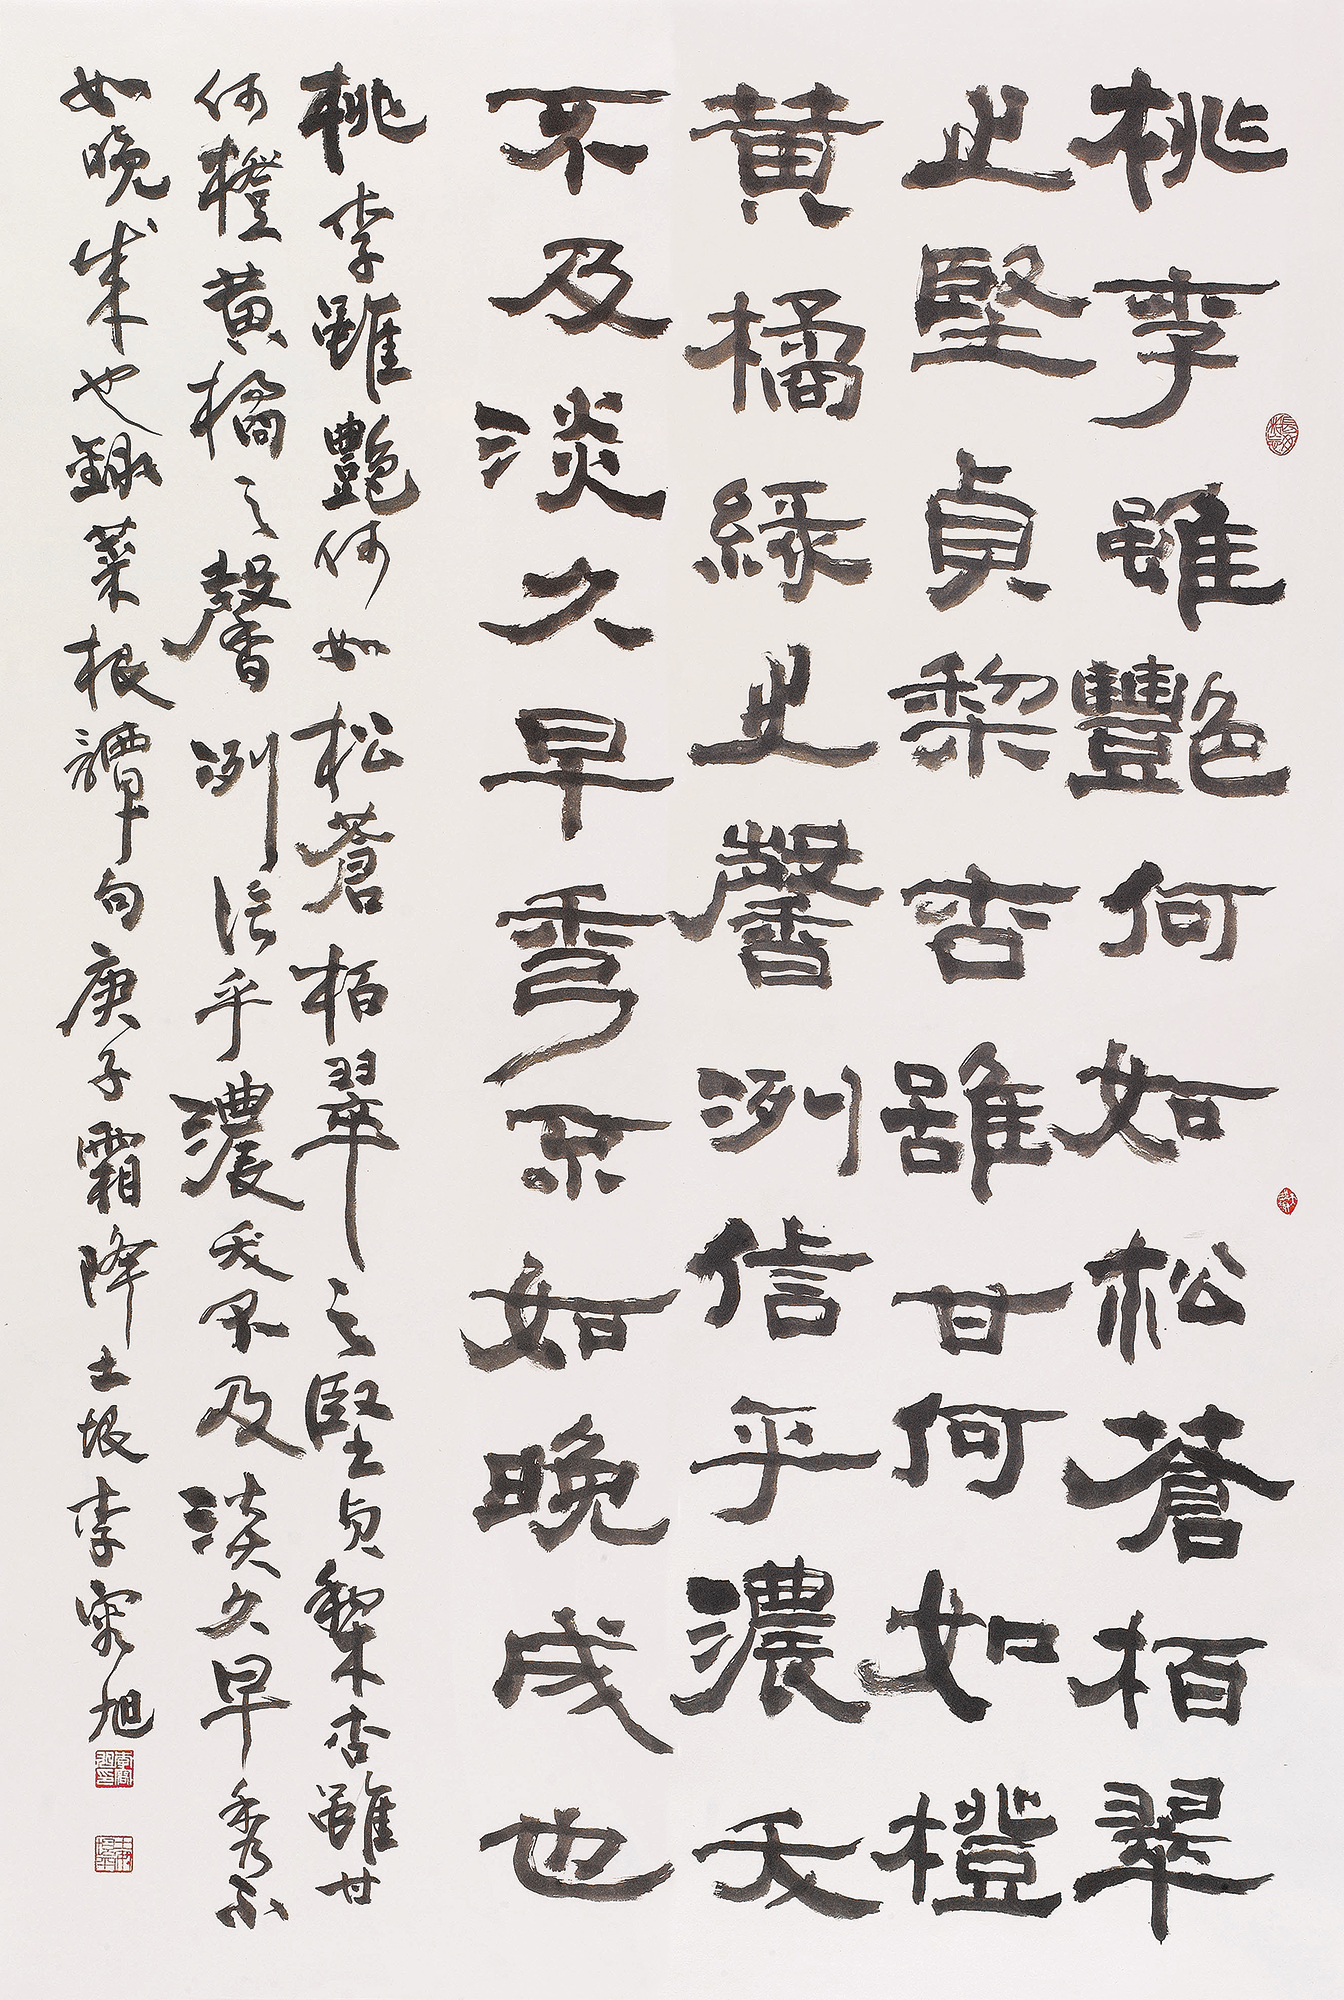 桃李雖艷何如松蒼栢翠
之堅貞棃杏雖甘何如橙
黄橘緑之馨洌信乎濃夭
不及淡久早秀不如晚成也
桃李雖艷何如松蒼栢翠之堅貞棃杏雖甘
何橙黄橘之馨洌信乎濃夭不及淡久早秀不
如晚成也錄菜根譚句庚子霜降土垠李旭